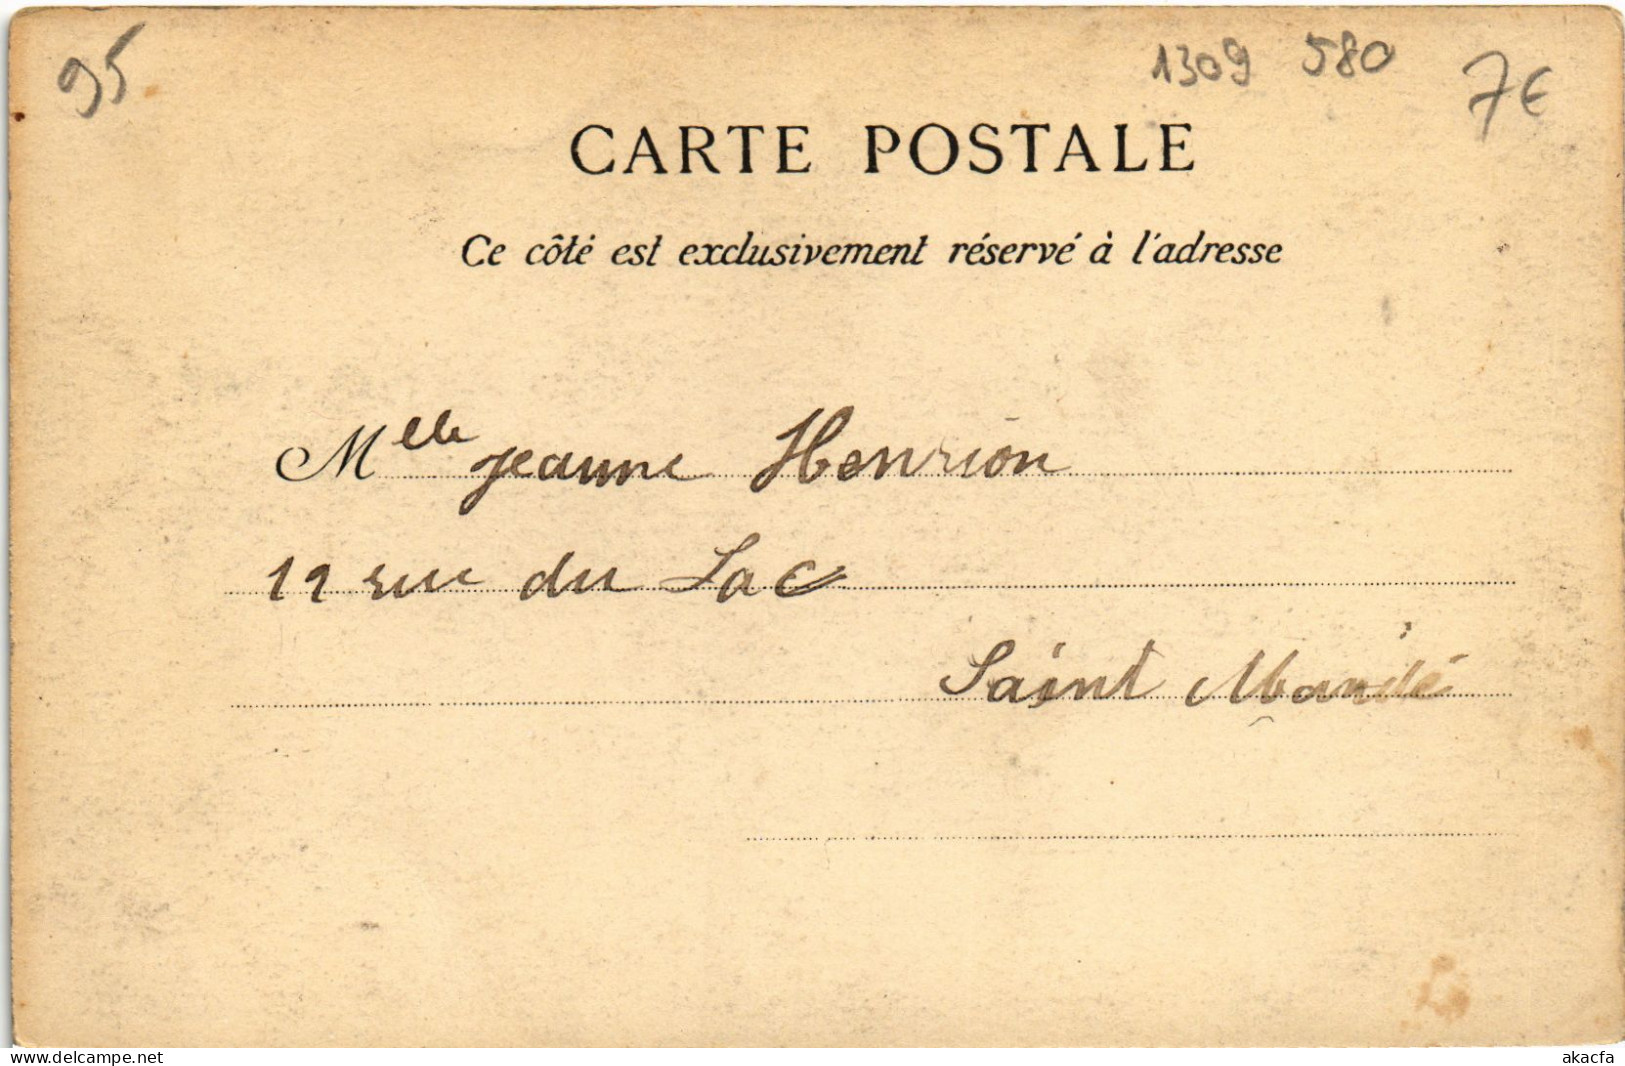 95
1309 580 7€
CARTE POSTALE
Ce côté est exclusivement réservé à l'adresse
Mlle Jeanne Henrion
11 rue du Lac
Saint Mandé
www.delcampe.net
akacfa